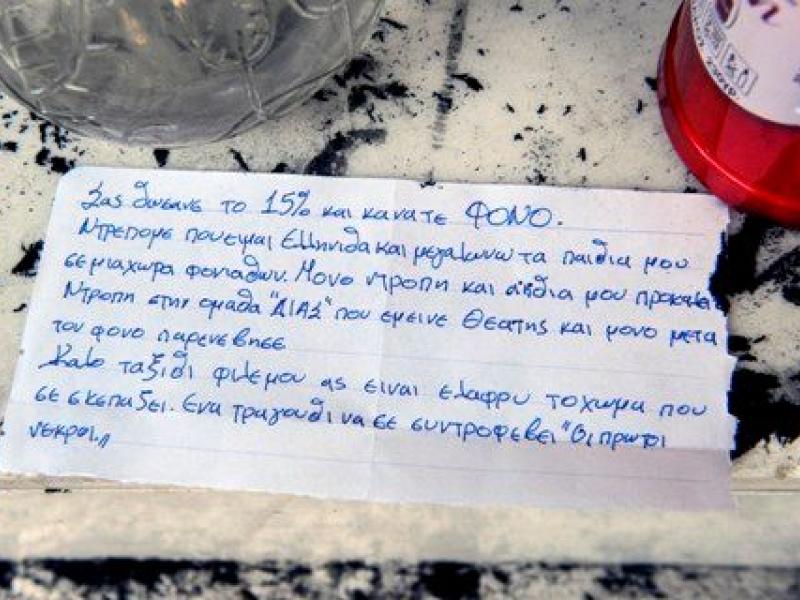 Σας δωσανε το 15% και κανατε ΦΟΝΟ.
Ντρεπομε που ειμαι Ελληνιδα και μεγαλωνω τα παιδια μου
σε μια χωρα φονιαδων. Μονο ντροπη και αηδια μου προκαλει
Ντροπη στην ομαδα "ΔΙΑΣ" που εμεινε Θεατης και μονο μετα
τον φονο παρενεβησε
Καλο ταξιδι φιλε μου ας ειναι ελαφρυ το χωμα που
σε σκεπαζει. Ενα τραγουδι να σε συντροφεβει "Οι πρωτοι
νεκροι,,